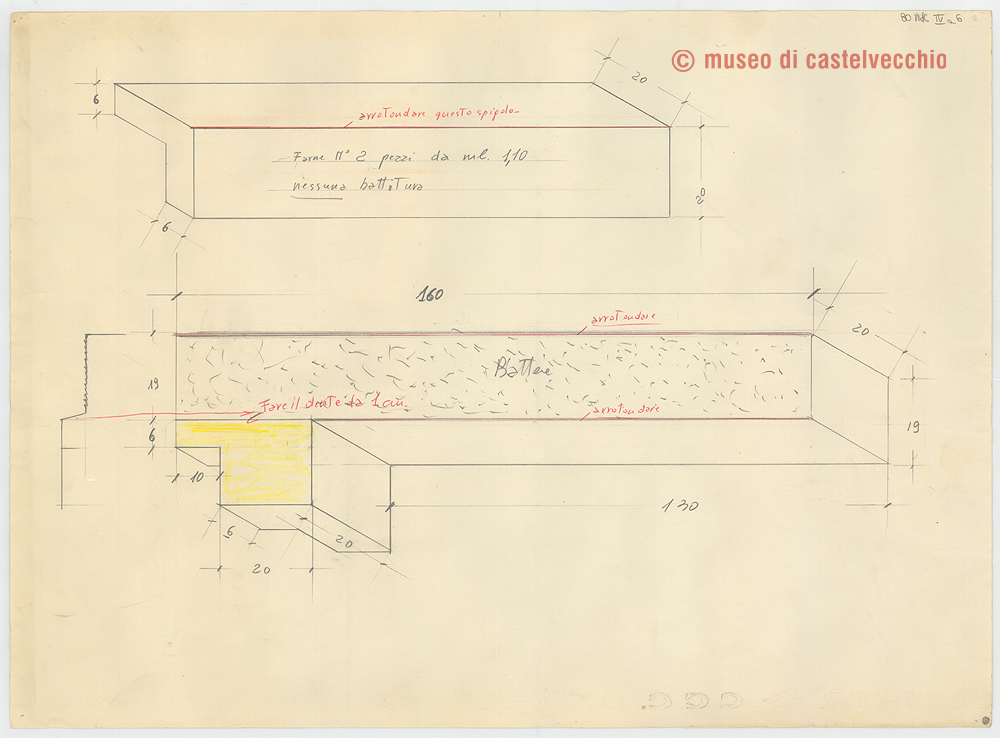 © museo di castelvecchio
6
20
arrotondare questo spigolo
Farne N° 2 pezzi da ml. 1,10
nessuna battitura
20
6
160
arrotondare
20
Battere
19
Fare il dente da 1 cm.
arrotondare
19
6
10
130
6
20
20